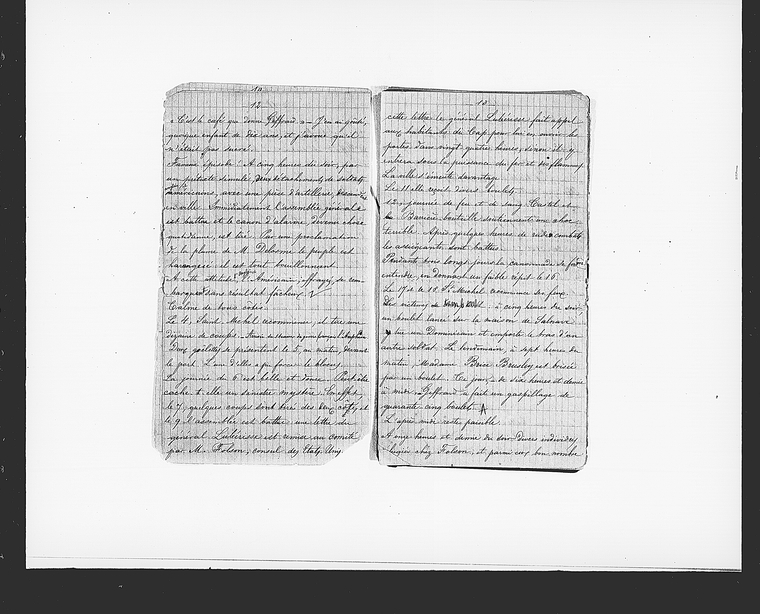 12
« C'est le café que donne Geffrard » — J'en ai goûté
quoique enfant de dix ans, et j'avoue qu'il
n'était pas sucré.
Fausse épisode ! A cinq heures du soir, par
un prétexte simulé, deux détachements de soldats
américains, avec une pièce d'artillerie,
en ville. Immédiatement l'assemblée générale
est battue et le canon d'alarme, devenu chose
, est tiré. Par une proclamation
à la plume de M. Delorme le peuple est
harangué il est tout bouillonnant
A cette attitude, l'Américain, effrayé, se rem-
barque sans résultat fâcheux.
Calme de tous côtés.
Le 4, Saint Michel recommence, et tire une
dizaine de coups.
Deux goélettes se présentent le 5, au matin, devant
le port. L'une d'elles a pu forcer le blocus.
La journée du 6 est belle et douce. Peut-être
cache-t-elle un sinistre mystère. En effet,
le 7, quelques coups sont tirés des deux côtés, et
le 9 l'assemblée est battue : une lettre du
général Lubérisse est remise au comité
par M. Folson, consul des Etats-Unis.
13
cette lettre le général Lubérisse fait appel
aux habitants du Cap pour lui en ouvrir les
portes dans vingt quatre heures, sinon il y
entrera sous la puissance du fer et des flammes
La ville s'émeute davantage.
Le 11 elle reçoit divers boulets.
12, journée de feu et de sang. Cristel et
la Barrière bouteille soutiennent un choc
terrible. Après quelques heures de rudes combats
les assiégeants sont battus.
Pendant trois longs jours la canonnade se fait
entendre, en donnant un faible répit le 15.
Le 17 et le 18 St Michel recommence ses feux
à cinq heures du soir,
un boulet lancé sur la maison de Salnave
tue un Dominicain et emporte le bras d'un
autre soldat. Le lendemain, à sept heures du
matin, Madame Brice Brusley est brisée
par un boulet. Ce jour, de six heures et demie
à midi, Geffrard a fait un gaspillage de
quarante cinq boulets.
L'après midi reste paisible
A onze heures et demie du soir divers individus
logés chez Folson, et parmi eux bon nombre